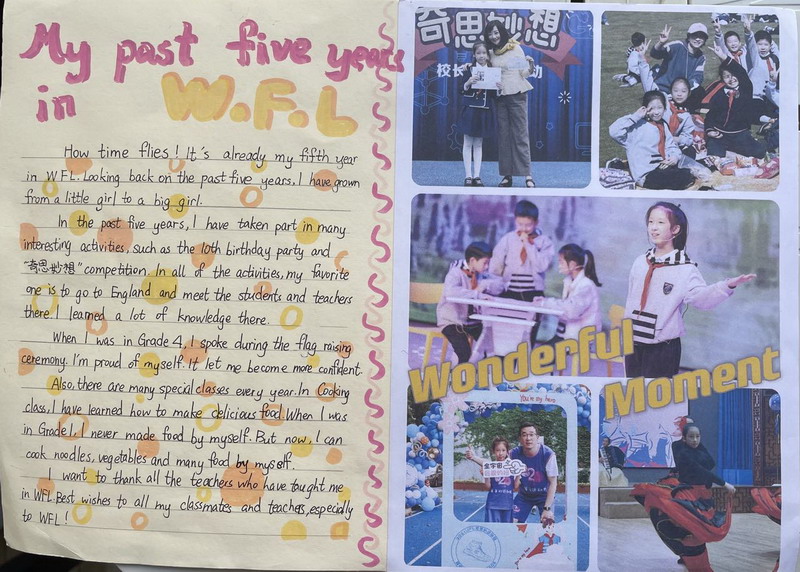 My past five years
in W.F.L
How time flies! It's already my fifth year
in WFL. Looking back on the past five years, I have grown
from a little girl to a big girl.
In the past five years, I have taken part in many
interesting activities, such as the 10th birthday party and
"奇思妙想" competition. In all of the activities, my favorite
one is to go to England and meet the students and teachers
there. I learned a lot of knowledge there.
When I was in Grade 4, I spoke during the flag raising
ceremony. I'm proud of myself. It let me become more confident.
Also, there are many special classes every year. In Cooking
class, I have learned how to make delicious food. When I was
in Grade 1, I never made food by myself. But now, I can
cook noodles, vegetables and many food by myself.
I want to thank all the teachers who have taught me
in WFL. Best wishes to all my classmates and teachers, especially
to WFL!
奇思妙想
校长
动
Wonderful
Moment
You're my hero
全宇宙